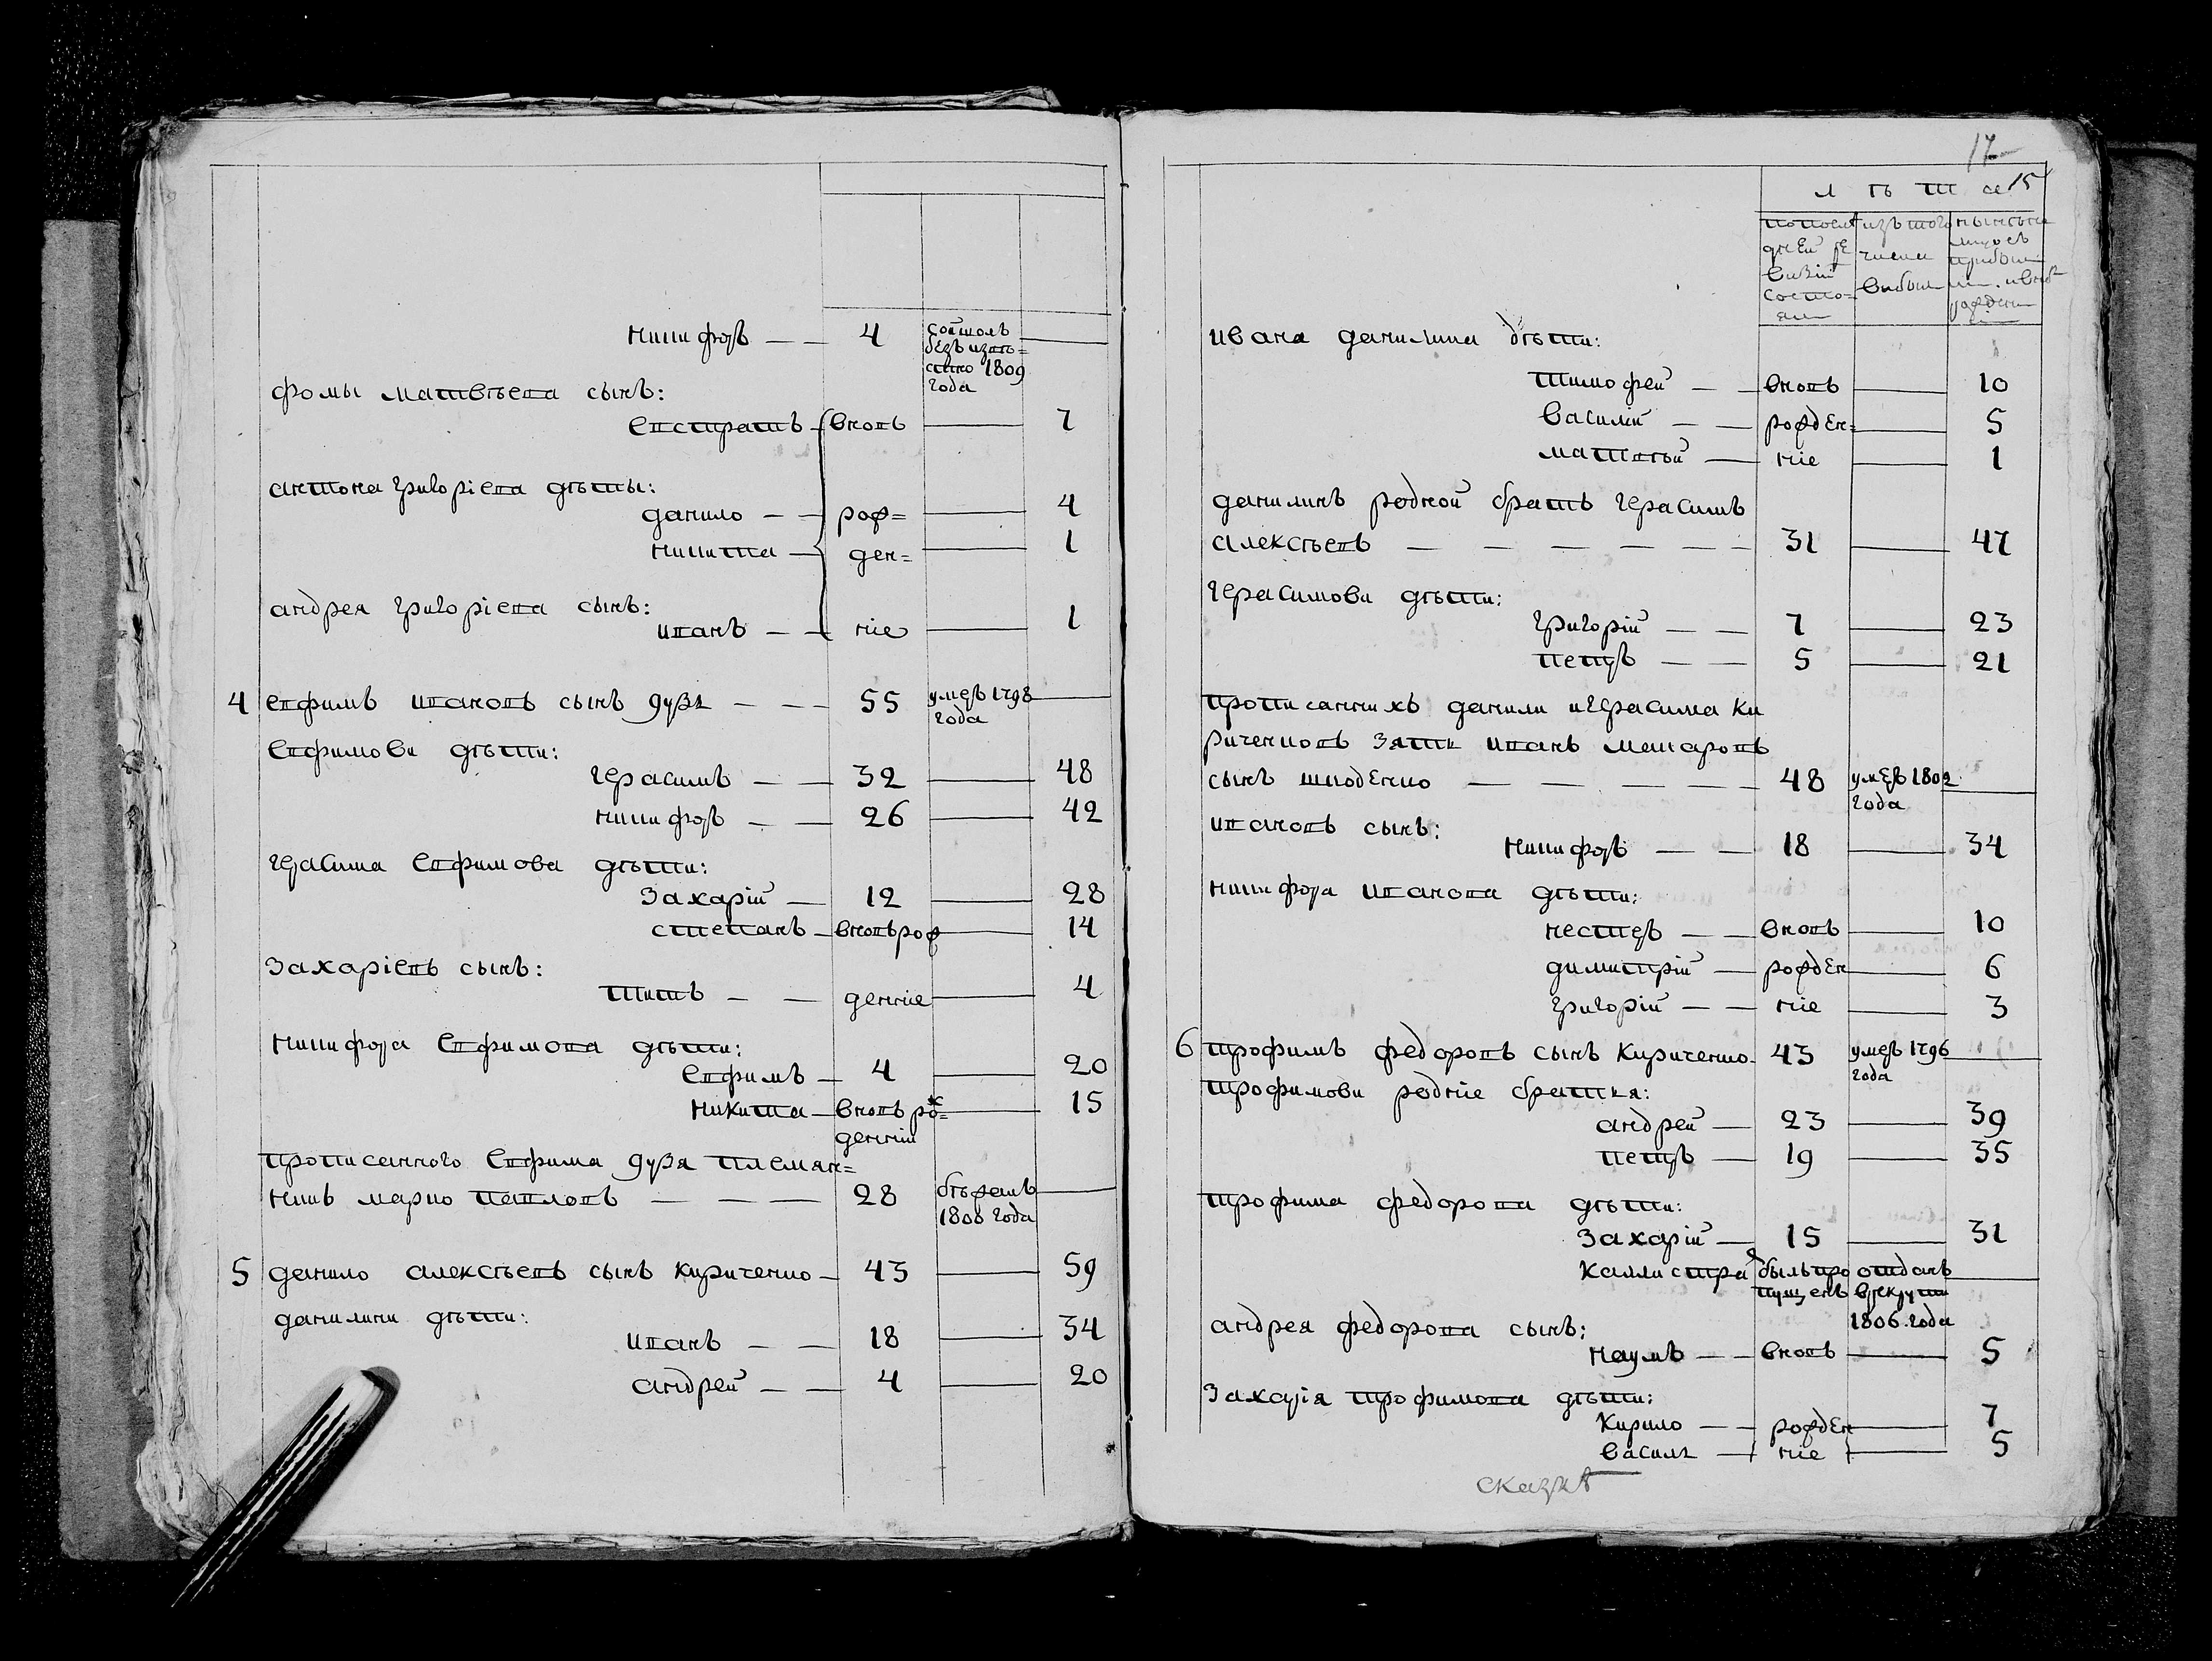 никифоръ — — 4 сошолъ
безъ извѣ=
стно 1809
года
фомы матвѣева сынъ:
евстратъ — вновь — 7
антона григоріева дѣты:
данило — — рож= — 4
никита — ден= — 1
андрея григоріева сынъ:
иванъ — — ніе — 1
4 ефимъ ивановъ сынъ — — — 55 умеръ 1798
года
ефимови дѣти:
герасимъ — — 32 — 48
никифоръ — — 26 — 42
герасима ефимова дѣти:
захарій — 12 — 28
степанъ — вновь рож — 14
захаріевъ сынъ:
титъ — — денніе — 4
никифора ефимова дѣти:
ефимъ — 4 — 20
никита — вновь рож= — 15
денній
прописанного ефима племян=
никъ марко павловъ — — — 28 бѣжалъ
1808 года
5 данило алексѣевъ сынъ кириченко — 43 — 59
данилини дѣти:
иванъ — — 18 — 34
андрей — — 4 — 20
17
л ѣ т а 15
попослѣ изъ того нынѣ на
дней ре числа лицо съ
визіи выбыли прибыли
состо= и вновь
яли рожден
ивана данилина дѣти:
тимофей — — вновь — 10
василій — — рожден= — 5
матвѣй — ніе — 1
данилинъ родной братъ герасимъ
алексѣевъ — — — — — — 31 — 47
герасимови дѣти:
григорій — — 7 — 23
петръ — — 5 — 21
прописаннихъ данили и герасима ки
риченковъ зять иванъ макаровъ
сынъ шкоденко — — — — — 48 умеръ 1802
года
ивановъ сынъ:
никифоръ — — 18 — 34
никифора иванова дѣти:
несторъ — — вновь — 10
димитрій — рожден — 6
григорій — — ніе — 3
6 трофимъ федоровъ сынъ кириченко 43 умеръ 1796
года
трофимови родніе братья:
андрей — 23 — 39
петръ — 19 — 35
трофима федорова дѣти:
захарій — 15 — 31
каллистра былъ про отданъ
пущенъ в рекруты
1806 года
андрея федорова сынъ:
наумъ — — вновь — 5
захарія трофимова дѣти:
кирило — — рожден — 7
василь — ніе — 5
сказкѣ